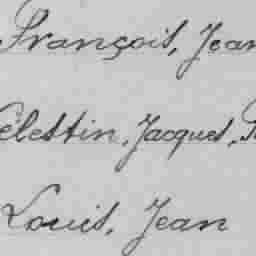 François, Jean
Célestin, Jacques,
Louis, Jean